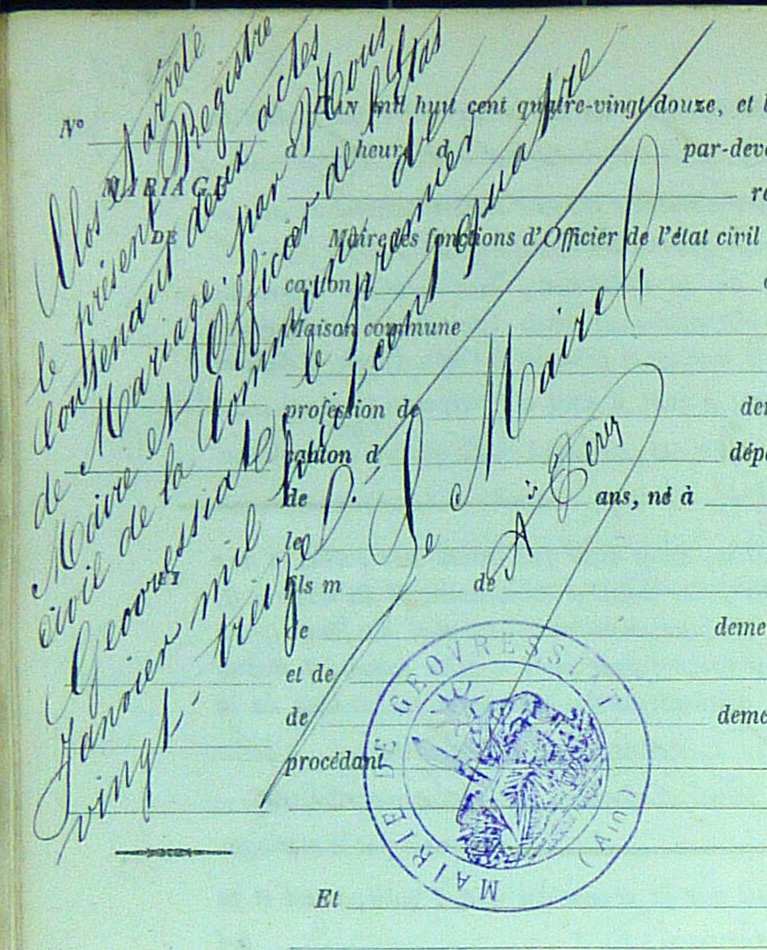 Clos et arrêté
le présent Registre
Contenant deux actes
de Mariage. par Nous
Maire et Officier de l'Etat
civil de la Commune de
Geovressiat le premier
Janvier mil huit cent quatre
vingt-treize.
Le Maire
N°
MARIAGE
DE
ET
L'AN mil huit cent quatre-vingt-douze, et l
à heure d par-deva
Maire les fonctions d'Officier de l'état civil
canton d
Maison commune
profession de
canton d dépa
de ans, né à
le
fils m de
de deme
et de
de deme
procédant
Et
MAIRIE DE GEOVRESSIAT
(Ain)